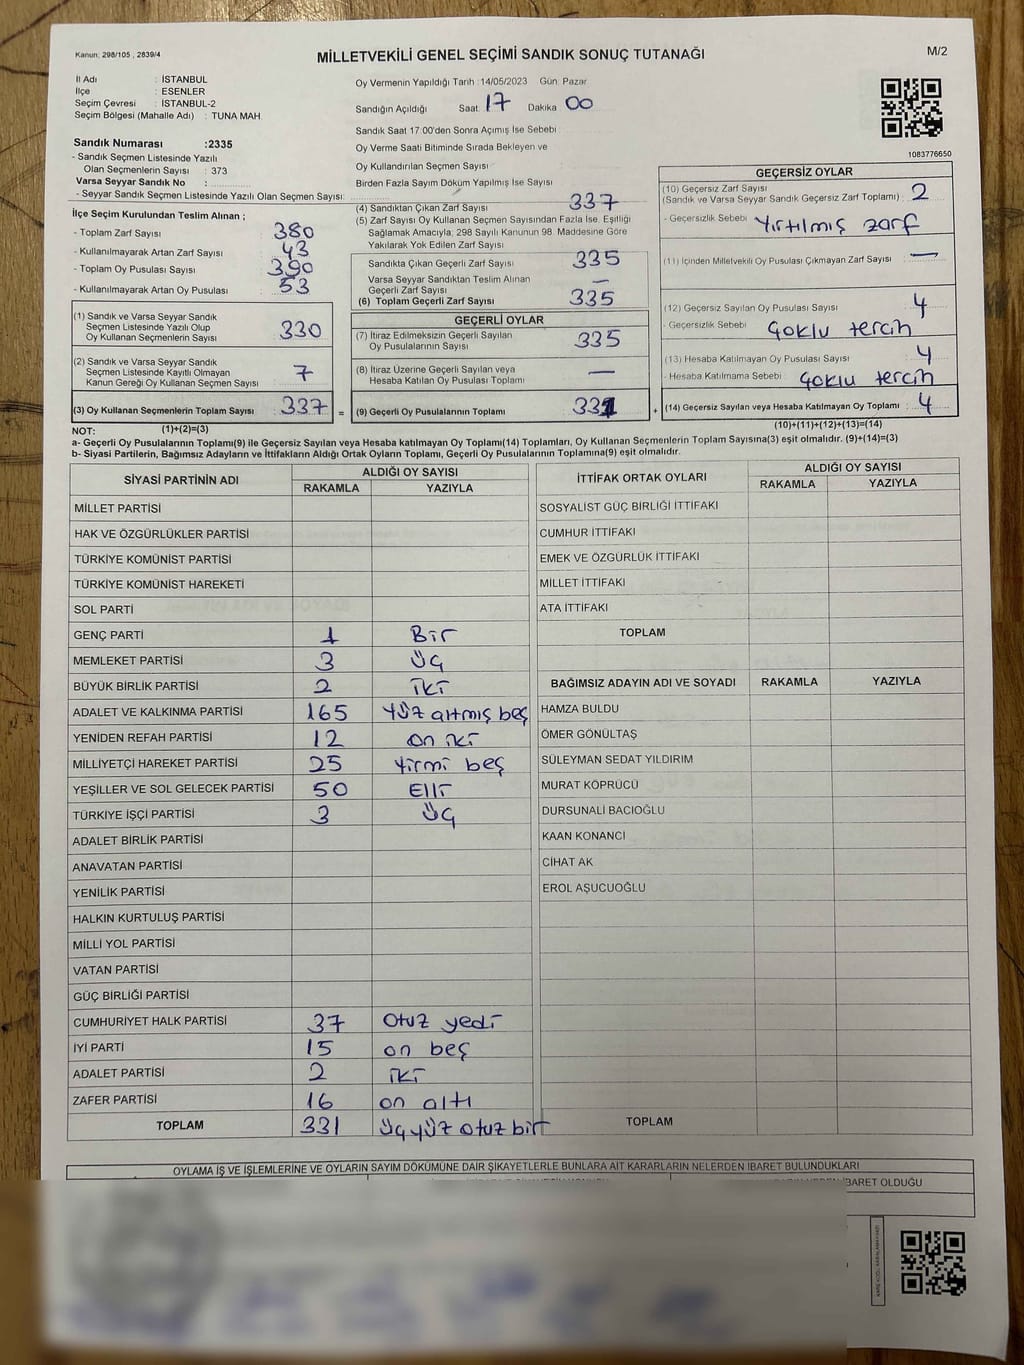 Kanun: 298/105 , 2839/4
MİLLETVEKİLİ GENEL SEÇİMİ SANDIK SONUÇ TUTANAĞI
M/2
İl Adı : İSTANBUL
İlçe : ESENLER
Seçim Çevresi : İSTANBUL-2
Seçim Bölgesi (Mahalle Adı) : TUNA MAH.
Oy Vermenin Yapıldığı Tarih :14/05/2023 Gün: Pazar
Sandığın Açıldığı Saat 17 Dakika 00
Sandık Saat 17:00'den Sonra Açımış İse Sebebi
Oy Verme Saati Bitiminde Sırada Bekleyen ve
Oy Kullandırılan Seçmen Sayısı
Birden Fazla Sayım Döküm Yapılmış İse Sayısı
1083776650
Sandık Numarası :2335
- Sandık Seçmen Listesinde Yazılı
Olan Seçmenlerin Sayısı : 373
Varsa Seyyar Sandık No :
- Seyyar Sandık Seçmen Listesinde Yazılı Olan Seçmen Sayısı:
İlçe Seçim Kurulundan Teslim Alınan ;
- Toplam Zarf Sayısı 380
- Kullanılmayarak Artan Zarf Sayısı 43
- Toplam Oy Pusulası Sayısı 390
- Kullanılmayarak Artan Oy Pusulası 53
(1) Sandık ve Varsa Seyyar Sandık
Seçmen Listesinde Yazılı Olup
Oy Kullanan Seçmenlerin Sayısı 330
(2) Sandık ve Varsa Seyyar Sandık
Seçmen Listesinde Kayıtlı Olmayan
Kanun Gereği Oy Kullanan Seçmen Sayısı 7
(3) Oy Kullanan Seçmenlerin Toplam Sayısı 337 =
(4) Sandıktan Çıkan Zarf Sayısı 337
(5) Zarf Sayısı Oy Kullanan Seçmen Sayısından Fazla İse. Eşitliği
Sağlamak Amacıyla, 298 Sayılı Kanunun 98. Maddesine Göre
Yakılarak Yok Edilen Zarf Sayısı
Sandıkta Çıkan Geçerli Zarf Sayısı 335
Varsa Seyyar Sandıktan Teslim Alınan
Geçerli Zarf Sayısı —
(6) Toplam Geçerli Zarf Sayısı 335
GEÇERLİ OYLAR
(7) İtiraz Edilmeksizin Geçerli Sayılan
Oy Pusulalarının Sayısı 335
(8) İtiraz Üzerine Geçerli Sayılan veya
Hesaba Katılan Oy Pusulası Toplamı —
(9) Geçerli Oy Pusulalarının Toplamı 331 +
GEÇERSİZ OYLAR
(10) Geçersiz Zarf Sayısı
(Sandık ve Varsa Seyyar Sandık Geçersiz Zarf Toplamı) : 2
- Geçersizlik Sebebi : Yırtılmış zarf
(11) İçinden Milletvekili Oy Pusulası Çıkmayan Zarf Sayısı —
(12) Geçersiz Sayılan Oy Pusulası Sayısı : 4
- Geçersizlik Sebebi : Çoklu tercih
(13) Hesaba Katılmayan Oy Pusulası Sayısı : 4
- Hesaba Katılmama Sebebi : Çoklu tercih
(14) Geçersiz Sayılan veya Hesaba Katılmayan Oy Toplamı : 4
NOT: (1)+(2)=(3) (10)+(11)+(12)+(13)=(14)
a- Geçerli Oy Pusulalarının Toplamı(9) ile Geçersiz Sayılan veya Hesaba katılmayan Oy Toplamı(14) Toplamları, Oy Kullanan Seçmenlerin Toplam Sayısına(3) eşit olmalıdır. (9)+(14)=(3)
b- Siyasi Partilerin, Bağımsız Adayların ve İttifakların Aldığı Ortak Oyların Toplamı, Geçerli Oy Pusulalarının Toplamına(9) eşit olmalıdır.
SİYASİ PARTİNİN ADI ALDIĞI OY SAYISI
RAKAMLA YAZIYLA
MİLLET PARTİSİ
HAK VE ÖZGÜRLÜKLER PARTİSİ
TÜRKİYE KOMÜNİST PARTİSİ
TÜRKİYE KOMÜNİST HAREKETİ
SOL PARTİ
GENÇ PARTİ 1 Bir
MEMLEKET PARTİSİ 3 üç
BÜYÜK BİRLİK PARTİSİ 2 iki
ADALET VE KALKINMA PARTİSİ 165 Yüz altmış beş
YENİDEN REFAH PARTİSİ 12 on iki
MİLLİYETÇİ HAREKET PARTİSİ 25 Yirmi beş
YEŞİLLER VE SOL GELECEK PARTİSİ 50 Elli
TÜRKİYE İŞÇİ PARTİSİ 3 üç
ADALET BİRLİK PARTİSİ
ANAVATAN PARTİSİ
YENİLİK PARTİSİ
HALKIN KURTULUŞ PARTİSİ
MİLLİ YOL PARTİSİ
VATAN PARTİSİ
GÜÇ BİRLİĞİ PARTİSİ
CUMHURİYET HALK PARTİSİ 37 Otuz yedi
İYİ PARTİ 15 on beş
ADALET PARTİSİ 2 iki
ZAFER PARTİSİ 16 on altı
TOPLAM 331 üçyüz otuz bir
İTTİFAK ORTAK OYLARI ALDIĞI OY SAYISI
RAKAMLA YAZIYLA
SOSYALİST GÜÇ BİRLİĞİ İTTİFAKI
CUMHUR İTTİFAKI
EMEK VE ÖZGÜRLÜK İTTİFAKI
MİLLET İTTİFAKI
ATA İTTİFAKI
TOPLAM
BAĞIMSIZ ADAYIN ADI VE SOYADI RAKAMLA YAZIYLA
HAMZA BULDU
ÖMER GÖNÜLTAŞ
SÜLEYMAN SEDAT YILDIRIM
MURAT KÖPRÜCÜ
DURSUNALİ BACIOĞLU
KAAN KONANCI
CİHAT AK
EROL AŞUCUOĞLU
TOPLAM
OYLAMA İŞ VE İŞLEMLERİNE VE OYLARIN SAYIM DÖKÜMÜNE DAİR ŞİKAYETLERLE BUNLARA AİT KARARLARIN NELERDEN İBARET BULUNDUKLARI
İBARET OLDUĞU